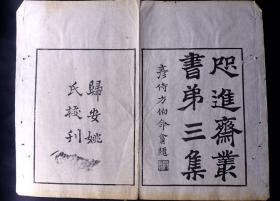 咫進齋叢
書弟三集
彥侍方伯命倉題
歸安姚
氏校刊